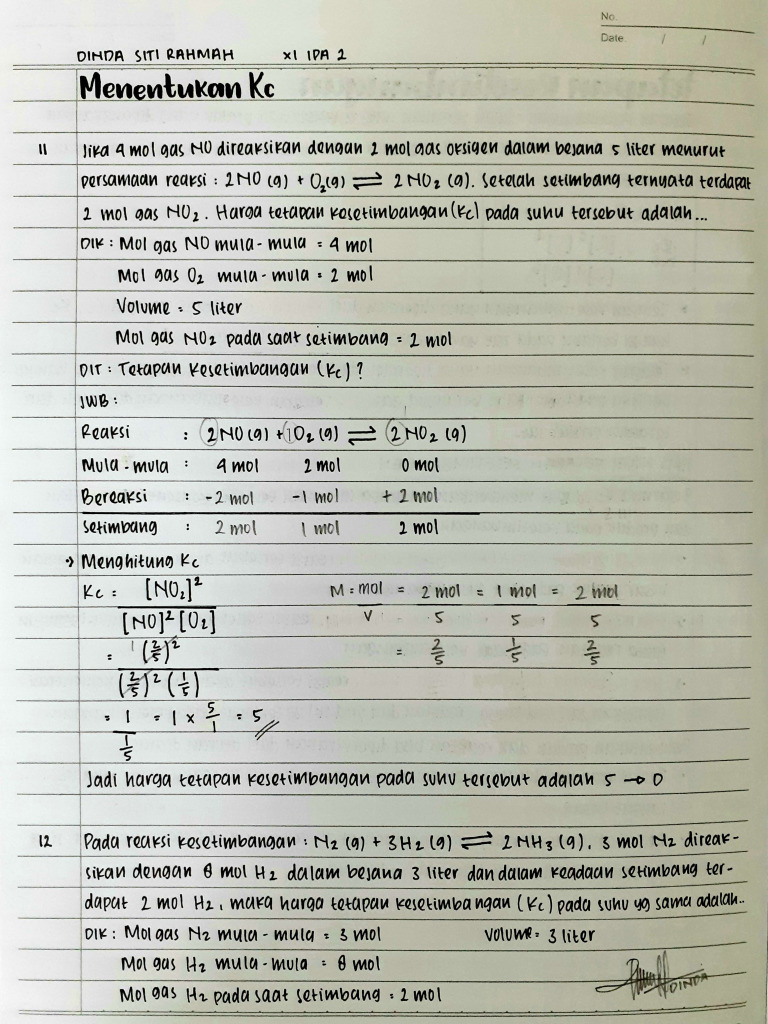 No.
Date. / /
DINDA SITI RAHMAH XI IPA 2
Menentukan Kc
11 Jika 4 mol gas NO direaksikan dengan 2 mol gas oksigen dalam bejana 5 liter menurut
persamaan reaksi : 2NO (g) + O₂(g) ⇌ 2NO₂ (g). Setelah setimbang ternyata terdapat
2 mol gas NO₂. Harga tetapan kesetimbangan (Kc) pada suhu tersebut adalah...
DIK : Mol gas NO mula-mula = 4 mol
Mol gas O₂ mula-mula = 2 mol
Volume = 5 liter
Mol gas NO₂ pada saat setimbang = 2 mol
DIT : Tetapan Kesetimbangan (Kc) ?
JWB :
Reaksi : 2NO (g) + 1O₂ (g) ⇌ 2NO₂ (g)
Mula-mula : 4 mol 2 mol 0 mol
Bereaksi : -2 mol -1 mol +2 mol
Setimbang : 2 mol 1 mol 2 mol
→ Menghitung Kc
Kc = [NO₂]² M = mol = 2 mol = 1 mol = 2 mol
[NO]² [O₂] V 5 5 5
= 1 (2/5)² = 2/5 1/5 2/5
(2/5)² (1/5)
= 1 = 1 × 5/1 = 5 //
1/5
Jadi harga tetapan kesetimbangan pada suhu tersebut adalah 5 → D
12 Pada reaksi kesetimbangan : N₂ (g) + 3H₂ (g) ⇌ 2NH₃ (g). 3 mol N₂ direak-
sikan dengan 8 mol H₂ dalam bejana 3 liter dan dalam keadaan setimbang ter-
dapat 2 mol H₂, maka harga tetapan kesetimbangan (Kc) pada suhu yg sama adalah..
DIK : Mol gas N₂ mula-mula = 3 mol Volume = 3 liter
Mol gas H₂ mula-mula = 8 mol
Mol gas H₂ pada saat setimbang = 2 mol
DINDA